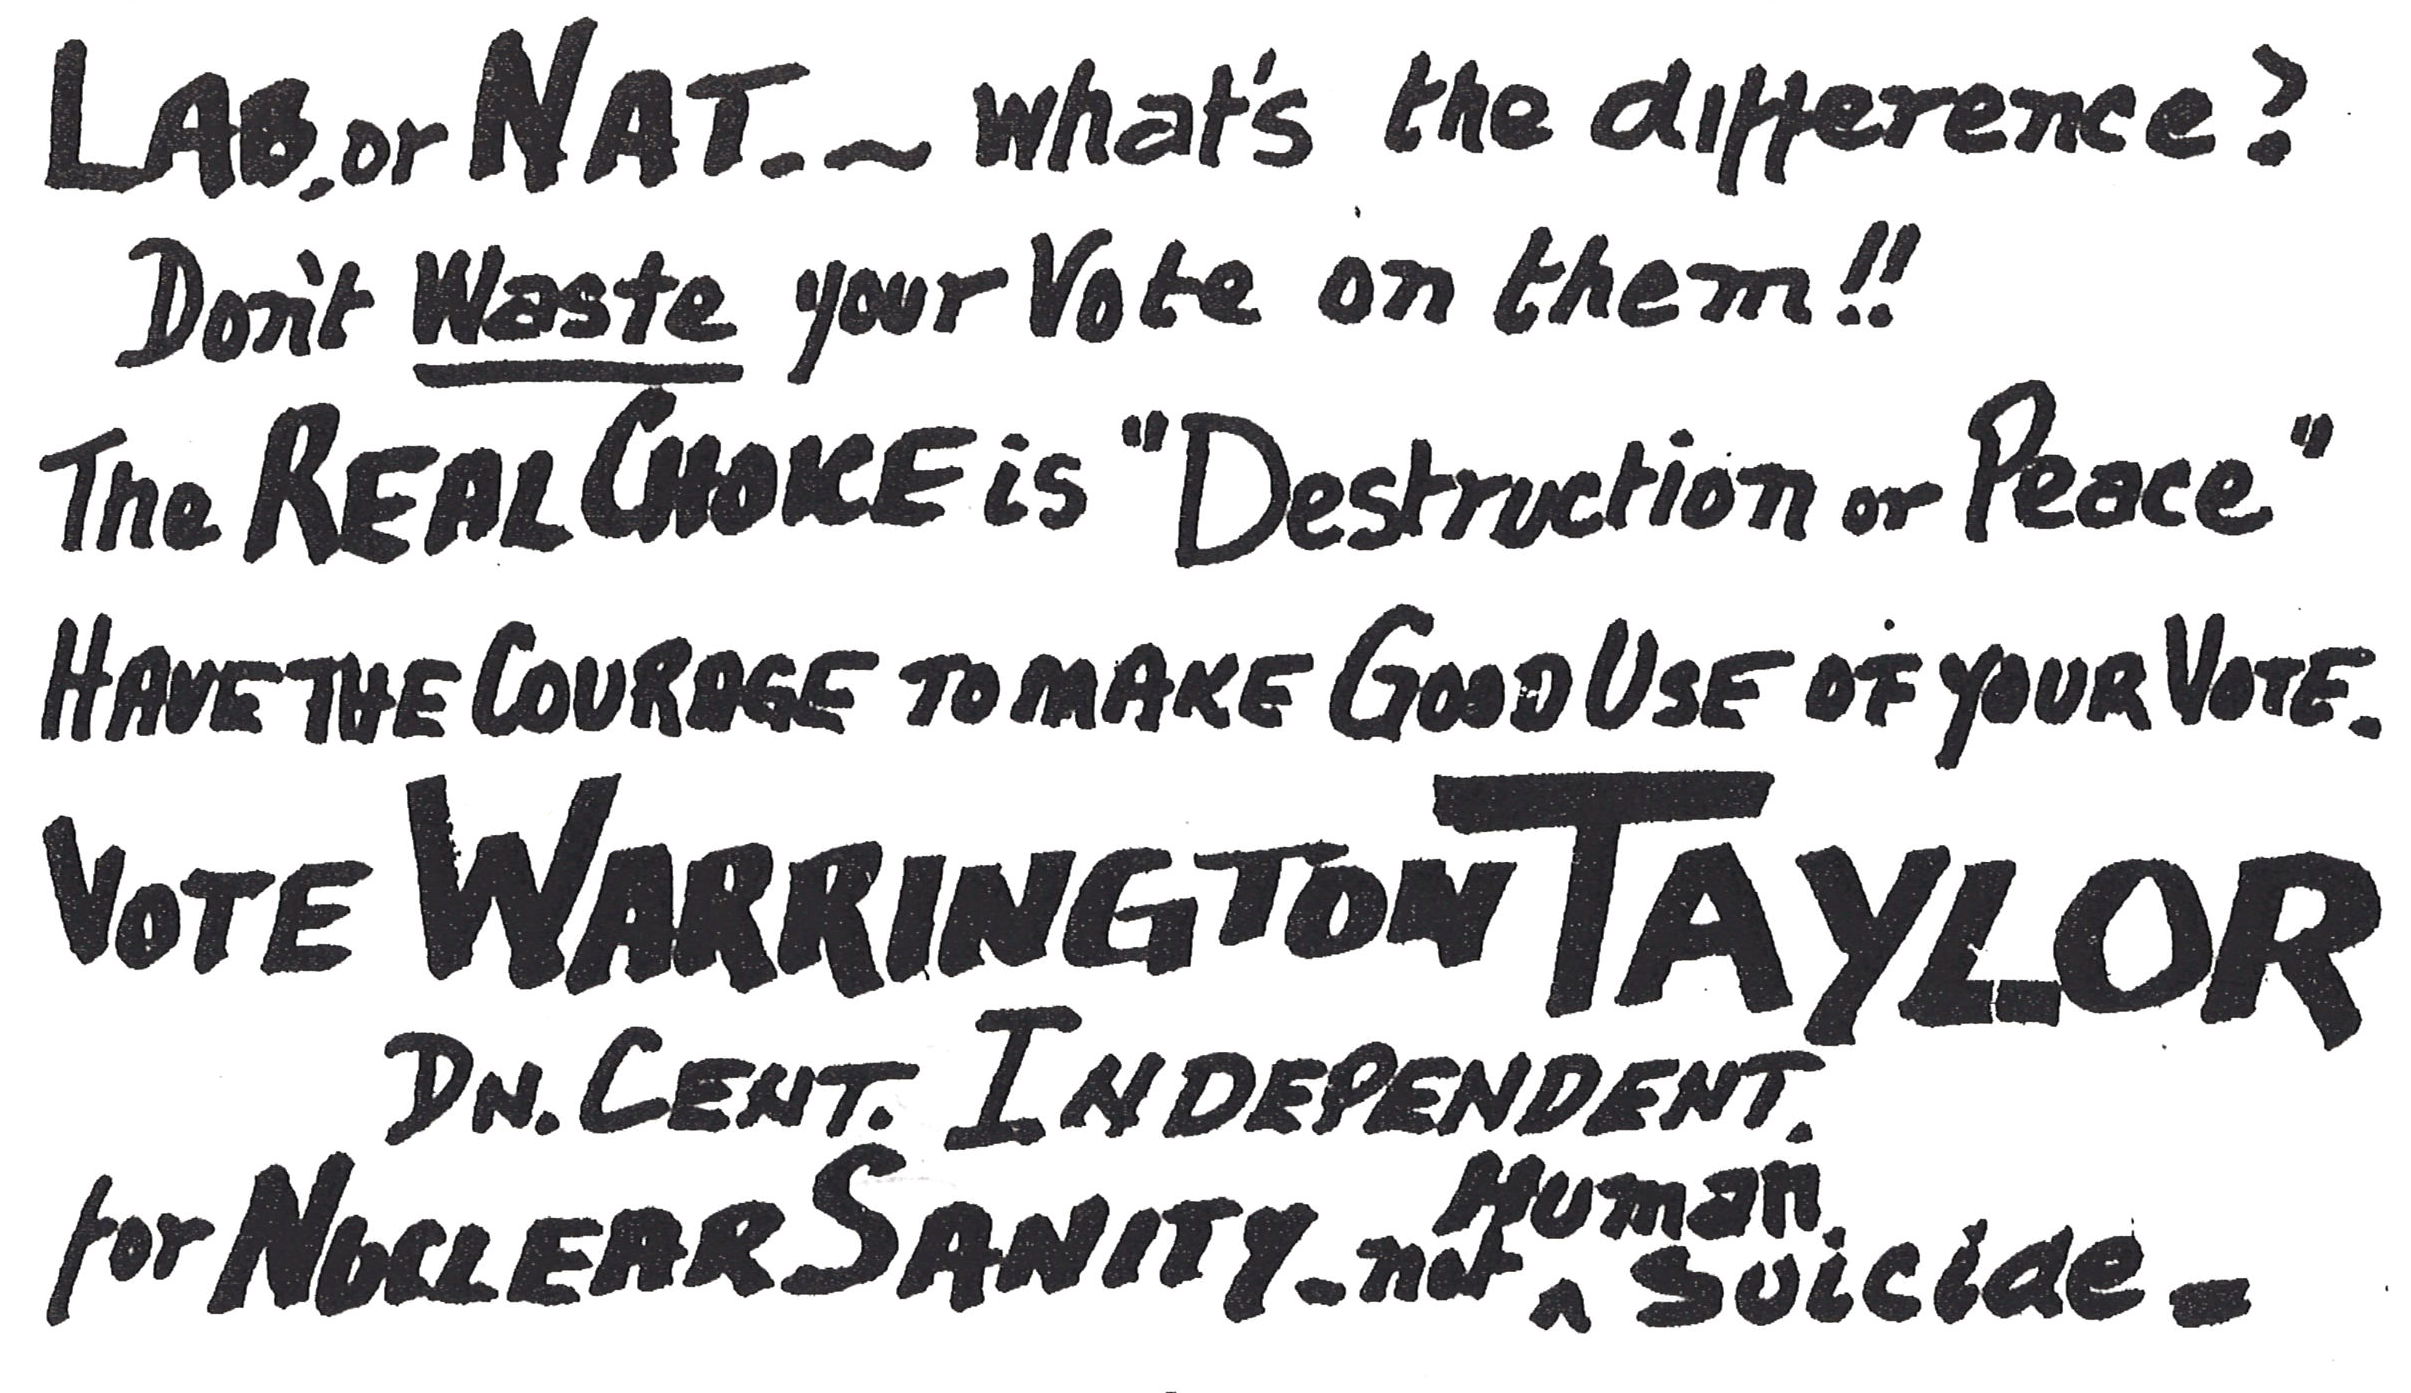 LAB. or NAT. ~ what's the difference?
Don't Waste your Vote on them!!
The REAL CHOICE is "Destruction or Peace"
HAVE THE COURAGE TO MAKE GOOD USE OF YOUR VOTE.
VOTE WARRINGTON TAYLOR
DN. CENT. INDEPENDENT.
for NUCLEAR SANITY - not ^ Human suicide -